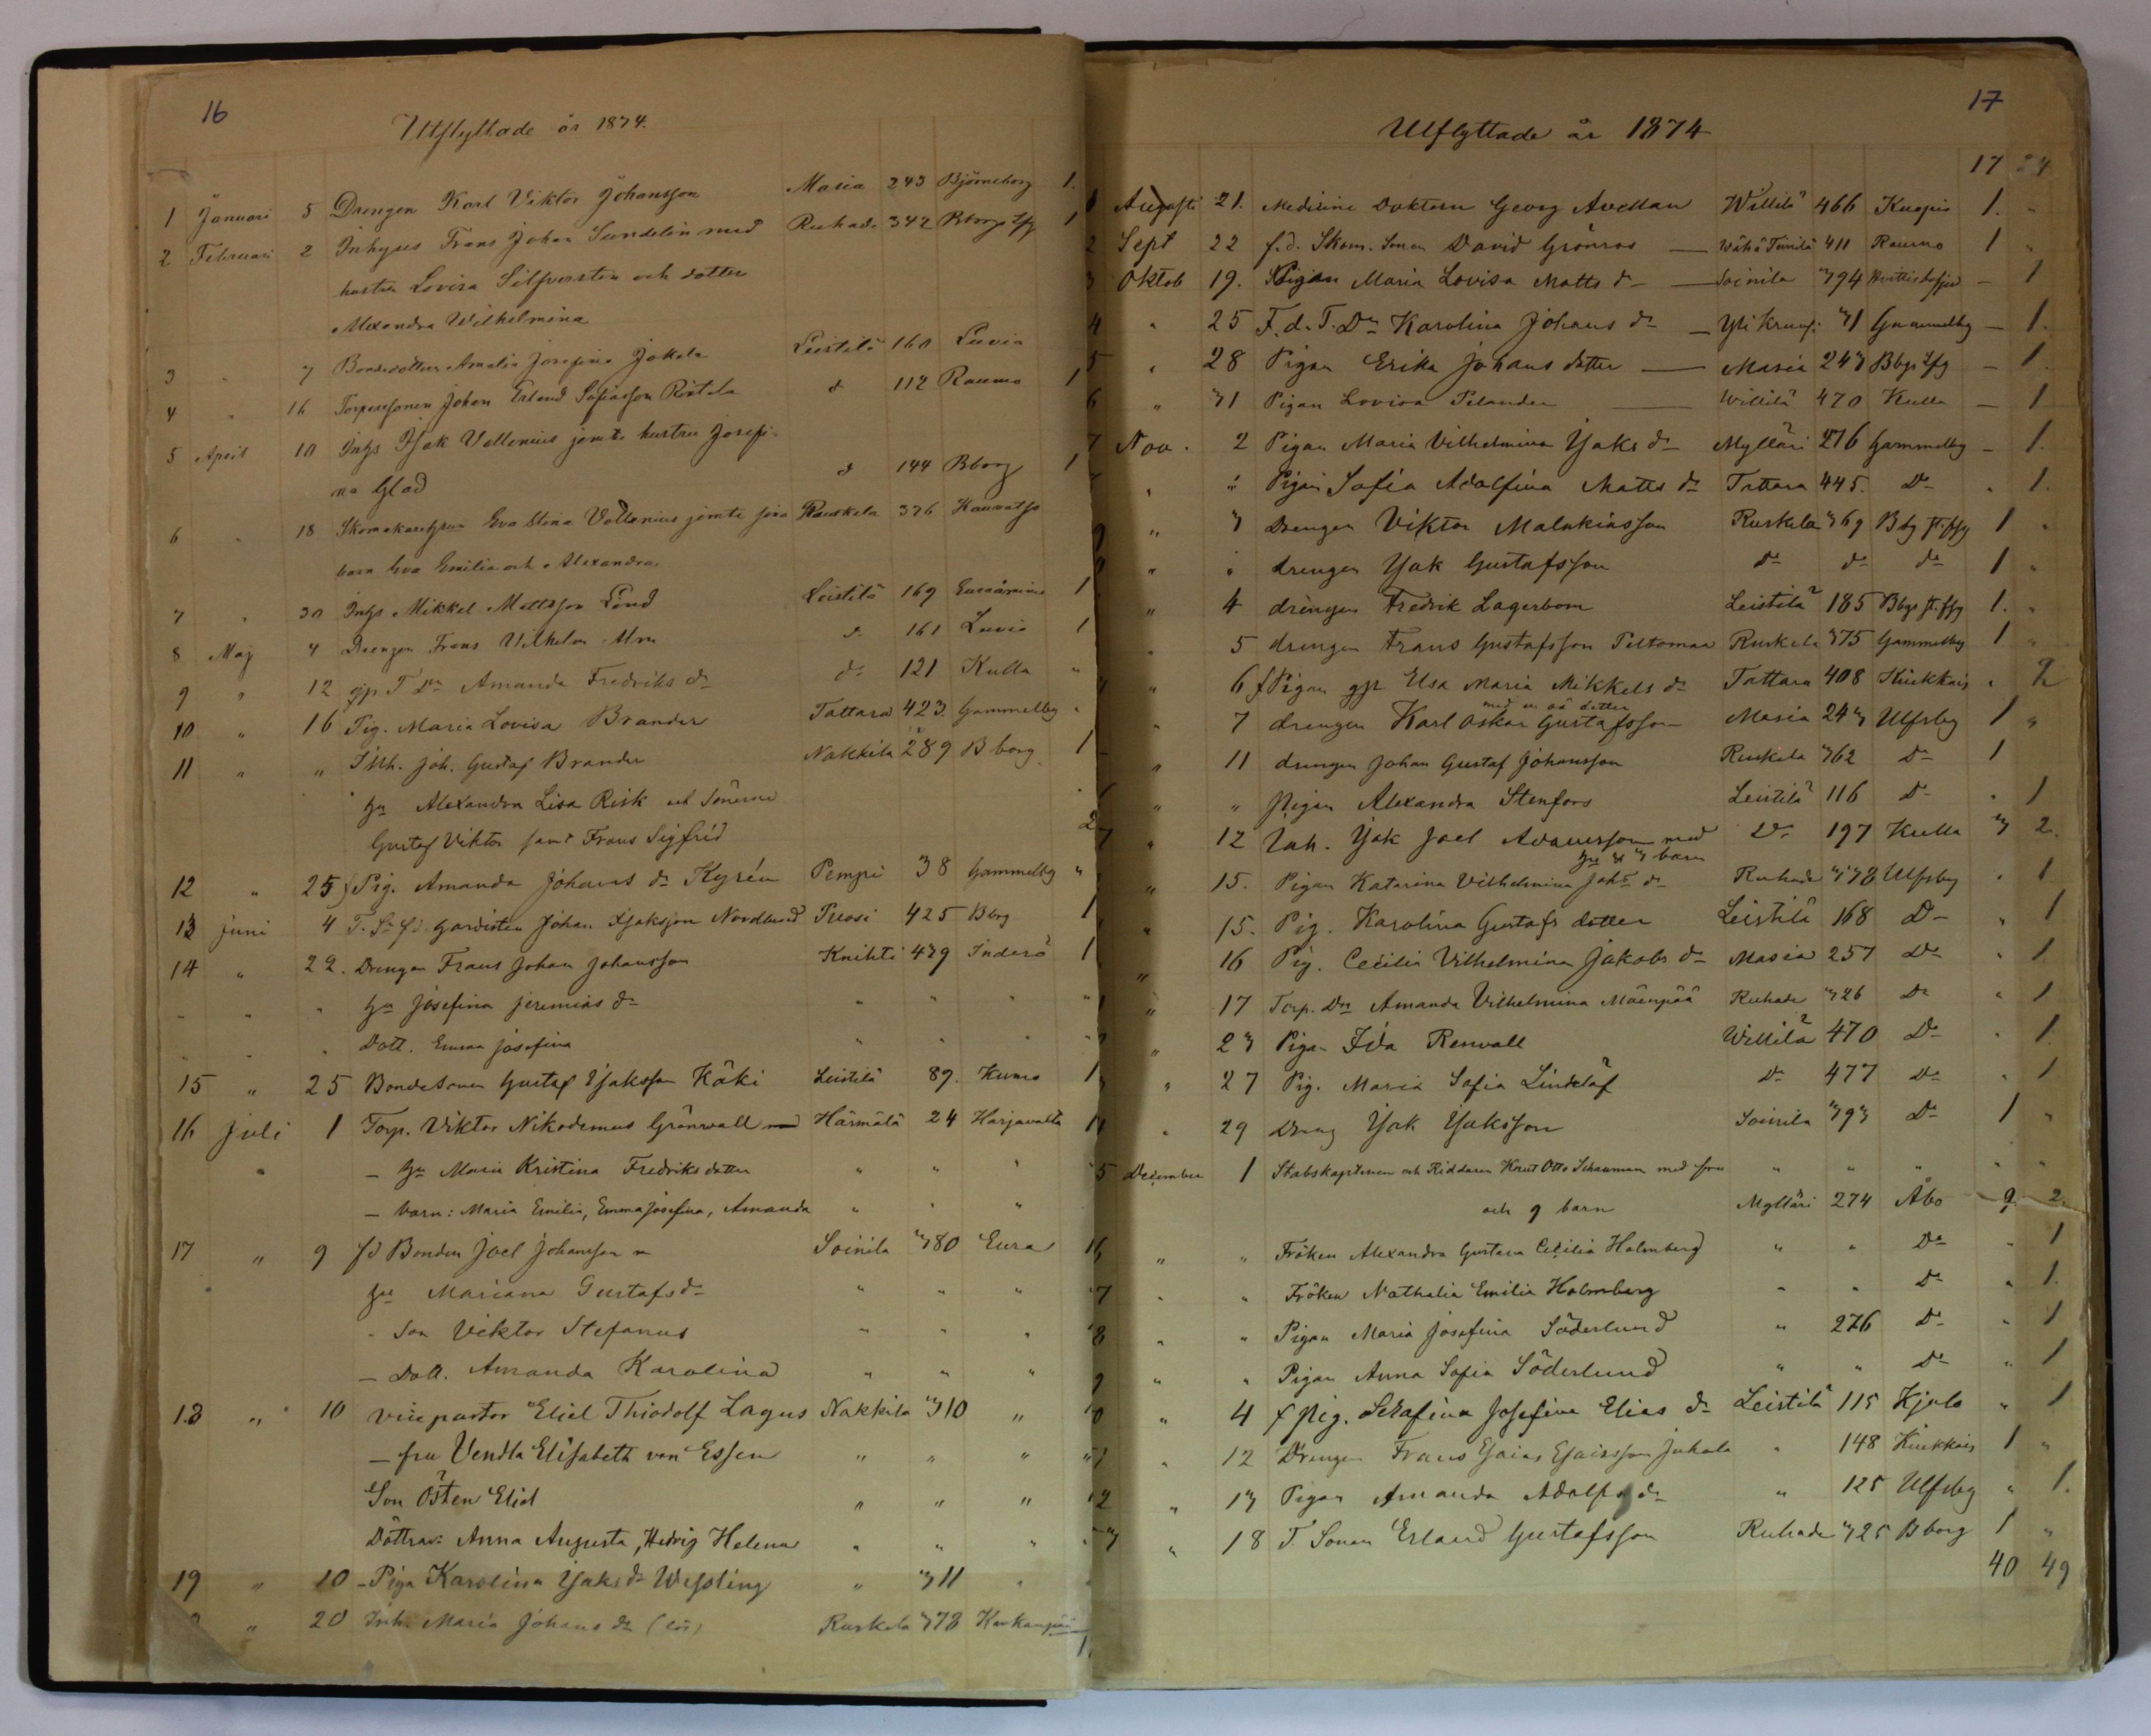 16
Utflyttade år 1874.
1 Januari 5 Drengen Karl Viktor Johansson Masia 243 Björneborg 1.
2 Februari 2 Inhyses Frans Johan Sundelin med Ruhade 342 Bborgs lfg 1
hustru Lovisa Silfversten och dotter
Alexandra Wilhelmina
3 " 7 Bondedottren Amalia Josefina Jokela Leistilä 160 Luvia
4 " 16 Torparesonen Johan Erland Sofiasson Ristola d 112 Raumo 1
5 April 10 Inhs Isak Vallenius jemte hustru Josefi-
na Glad d 144 Bborg 1
6 " 18 Skomakareenkan Eva Stina Vallenius jemte sina Ruskela 376 Kauvatsa
barn Eva Emilia och Alexandra
7 " 30 Inhs Mikkel Mattsson Lind Leistilä 169 Euraåminne 1
8 Maj 4 Drengen Frans Vilhelm Alm d: 161 Luvia 1
9 " 12 gp T. Dn Amanda Fredriks dr d: 121 Kulla "
10 " 16 Pig. Maria Lovisa Brander Tattara 423. Gammelby "
11 " " Inh. Joh. Gustaf Brander Nakkila 289 Bborg 1
hu Alexandra Lisa Risk och Sönerna
Gustaf Viktor samt Frans Sigfrid 2
12 " 25 Pig. Amanda Johans dr Kyrén Pempi 38 Gammelby "
13 juni 4 T. Sn fd. gardisten Johan Isaksson Nordlund Puosi 425 Bbrg 1
14 " 22. Drengen Frans Johan Johansson Knihti 439 Inderö 1
" " " hu Josefina Jeremias dr " " " "
" " " Dott. Emma Josefina " " "
15 " 25 Bondesonen Gustaf Isaksson Käki Leistilä 89. Kumo 1
16 juli 1 Torp. Viktor Nikodemus Grönvall med Härmälä 24 Harjavalta
" – hu Maria Kristina Fredriksdotter " " "
– barn: Maria Emilia, Emma Josefina, Amanda " " "
17 " 9 fd Bonden Joel Johansson m Soinila 380 Eura
hu Mariana Gustafs dr " " "
- Son Viktor Stefanus " " "
– Dott. Amanda Karolina " " "
18 " 10 vice pastor Eliel Thiodolf Lagus Nakkila 310 "
– fru Vendla Elisabeth von Essen " " "
Son Östen Eliel " " "
Döttrar: Anna Augusta, Hedvig Helena " " "
19 " 10 – Piga Karolina Isaks dr Wessling " 311 "
" 20 Inh. Maria Johans dr (lös) Ruskela 378 Kankaanpää
1
17
Utflyttade år 1874
17 24
Augusti 21. Medicine Doktorn Georg Avellan Willilä 466 Kuopio 1. "
2 Sept 22 f.d. Skom. Sonen David Grönroos — Wähä Timila 411 Raumo 1 "
3 Oktob 19. Pigan Maria Lovisa Matts dr — Soinila 394 – 1
4 " 25 F.d. T. Dn Karolina Johans dr — Gammelby – 1.
5 " 28 Pigan Erika Johans dotter — Masia 243 Bbgs lfg – 1.
6 " 31 Pigan Lovisa Pelander — Willilä 470 Kulla – 1
7 Nov. 2 Pigan Maria Vilhelmina Isaks dr Mylläri 276 Gammelby – 1.
" " Pigan Sofia Adolfina Matts dr Tattara 445. Do " 1.
9 " 3 Drengen Viktor Malakiasson Ruskela 369 Bbg st.ffg 1 "
" " drengen Isak Gustafsson do do do 1 "
" 4 drengen Fredrik Lagerbom Leistilä 185 Bbgs st.ffg 1. "
" 5 drengen Frans Gustafsson Peltomaa Ruskela 375 Gammelby 1 "
" 6 Pigan gp Elsa Maria Mikkels dr Tattara 408 Kiukkais " 2
med en oä dotter
" 7 drengen Karl Oskar Gustafsson Masia 243 Ulfsby 1 "
" 11 drengen Johan Gustaf Johansson Ruskela 362 Do 1
" " pigan Alexandra Stenfors Leistilä 116 Do " 1
7 " 12 Inh. Isak Joel Adamsson med Do 197 Kulla 3 2.
hu & 3 barn
" 15. Pigan Katarina Vilhelmina Johs dr Ruhade 338 Ulfsby " 1
" 15. Pig. Karolina Gustafs dotter Leistilä 168 Do " 1
" 16 Pig. Cecilia Vilhelmina Jakobs dr Masia 257 Do " 1
" 17 Torp. Dn Amanda Vilhelmina Mäenpää Ruhade 326 Do " 1
" 23 Pigan Ida Renvall Willilä 470 Do " 1
" 27 Pig. Maria Sofia Lindelöf Do 477 Do " 1
" 29 Dreng Isak Isaksson Soinila 393 Do 1 "
5 December 1 Stabskaptenen och Riddaren Knut Otto Schauman med fru " " " " "
och 9 barn Mylläri 274 Åbo – 9. 2.
16 " " Fröken Alexandra Gustava Cecilia Holmberg " " Do " 1
7 " " Fröken Nathalia Emilia Holmberg " " Do " 1.
8 " " Pigan Maria Josefina Söderlund " 276 Do " 1
9 " " Pigan Anna Sofia Söderlund " " Do " 1
0 " 4 pig. Serafina Josefina Elias dr Leistilä 115 Kjulo " 1
" 12 Drengen Frans Esaias Esaiasson Juhola " 148 Kiukkais 1 "
2 " 13 Pigan Amanda Adolfs dr " 125 Ulfsby " 1.
3 " 18 T. Sonen Erland Gustafsson Ruhade 325 Bborg 1 "
40 49